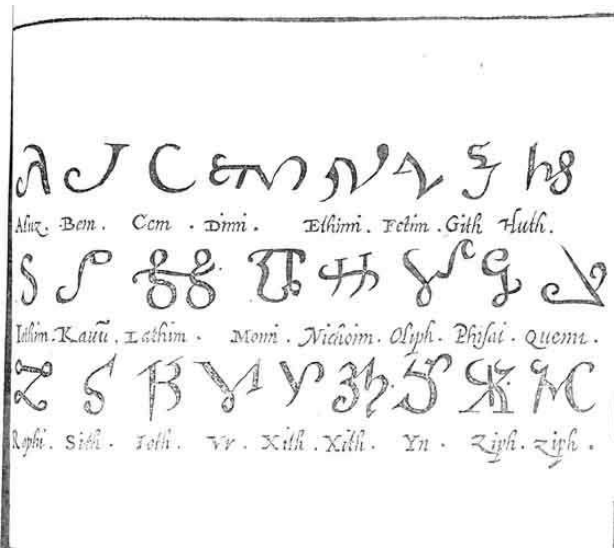 Aluz. Bem. Cem. Dinni. Ethimi. Fetim. Gith Huth.
Iathim. Kauũ. Lathim. Momi. Nichoim. Oliph. Phisai. Quemi.
Rophi. Sith. Toth. Vr. Xith. Xith. Yn. Ziph. Ziph.